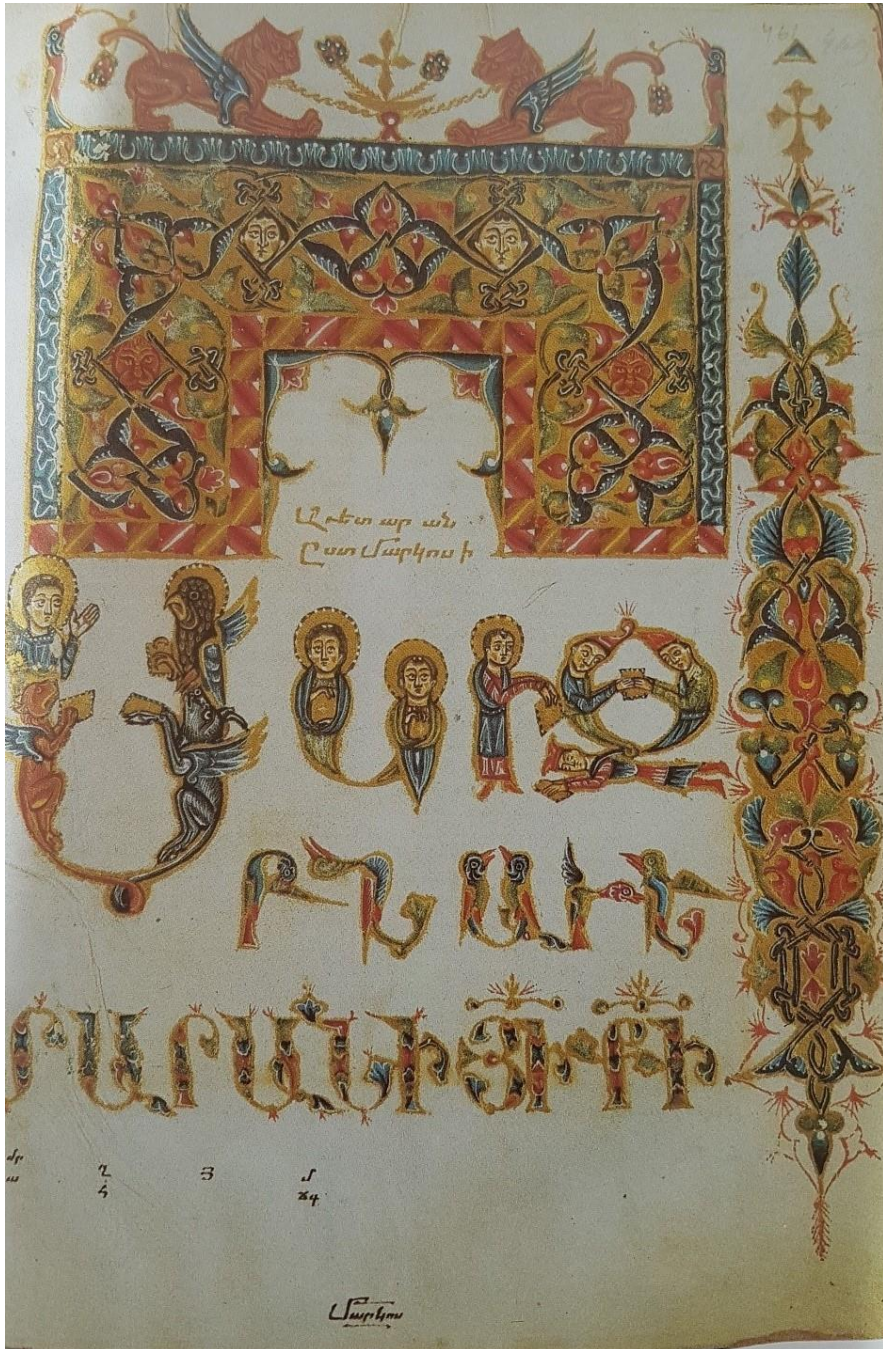 Աւետարան
Ըստ Մարկոսի
ՍԿԻԶ
ԲՆ ԱՒԵ
ՏԱՐԱՆԻ ՅԻ ՔԻ
Մարկոս